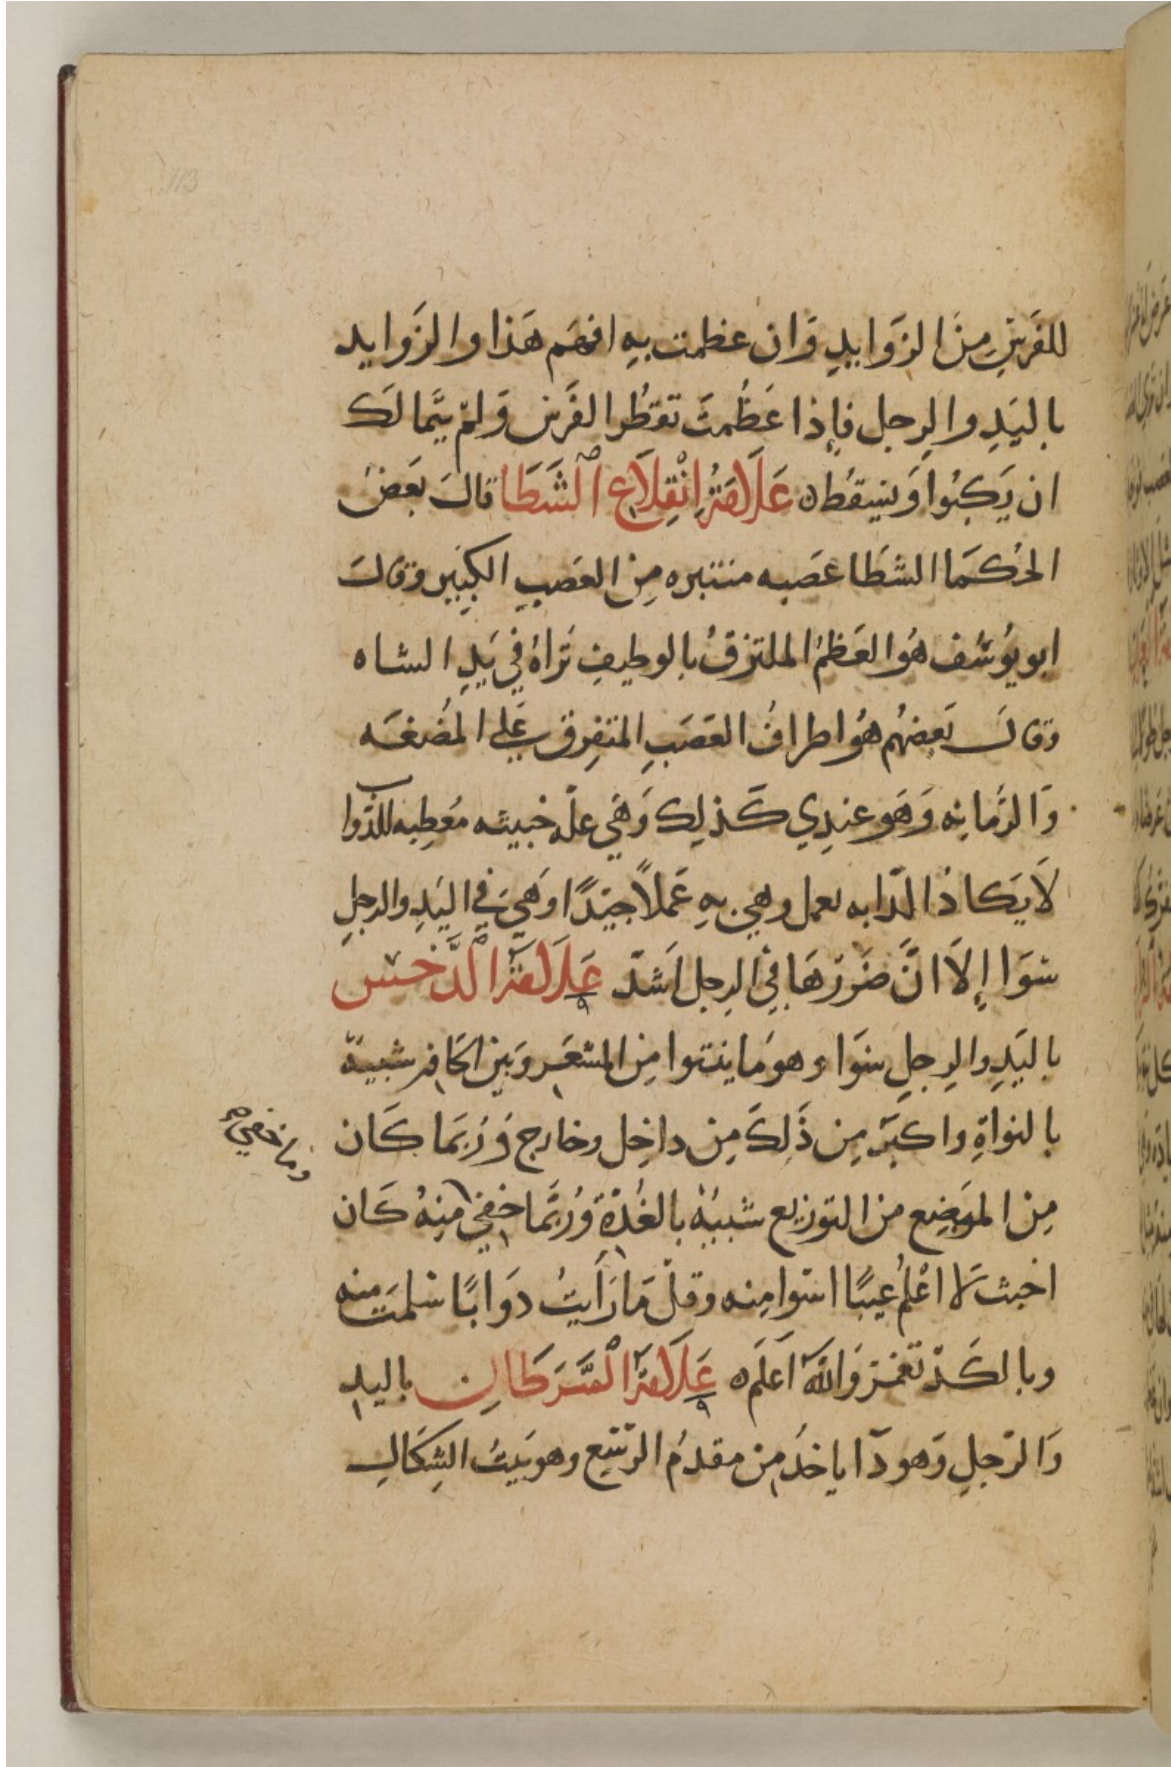 113
للفَرَسِ مِنَ الزَوَايدِ وَان عظمت بهِ افهَم هَذا والزَوايد
باليَدِ والرِجل فاِذا عَظُمتَ تقطُر الفَرَس وَلم يَتَمالَك
ان يَكبُوا وَيسقُط ه عَلَامَةُ اِنْقِلَاع الْشَطَا قالَ بَعَضُ
الحُكَمَا الشطَا عَصَبه منتبره مِن العَصَبِ الكبَير وقالَ
ابو يوُسُف هُوا العَظمُ الملتزقُ بالوطيفِ تَراهُ في يَدِ الشاه
وقالَ بَعضهُم هُوا طرافُ العَصَبِ المتفِرق عَلي المُضغَه
وَالرُمانه وَهَو عندِي كَذلِك وَهَي علّه خبيثه مُعَطِبه للدّوا
لاَيَكادُ الدّابه تعمل وهي بهِ عَملاً جيّدًا وَهيَ في اليَدِ والرجلِ
سَوَا اِلاَ انَّ ضَررَهَا في الرِجل اَشدّ عَلاَمَة الْدَّخَس
باليَدِ والرِجلِ سَوَا وهوَ مَا ينتوا مِن المشعَر وَبَين الحَافِر شبيهٌ
بالنواةِ واكبَر مِن ذَلِكَ مِن داخِل وخارج وَرُبَما كَان
مِن الموَضِع من التوزيع شبيهٌ بالغُدَّة وَرُبَّما خفيَ مِنهُ كَان
اخبث لا اعْلمُ عيبًا اسَوا مِنه وقلْ مَا رَأيتُ دوَابًا سَلمَت مِنه
وبالكَدّ تغمز وَاللهُ اَعَلَم ه عَلَامَة الْسَّرَطَانِ باليدِ
وَالرّجلِ وَهو دَا ياخذُ مِن مقدمُ الرّسِغ وهو بَيتُ الشِكَالِ